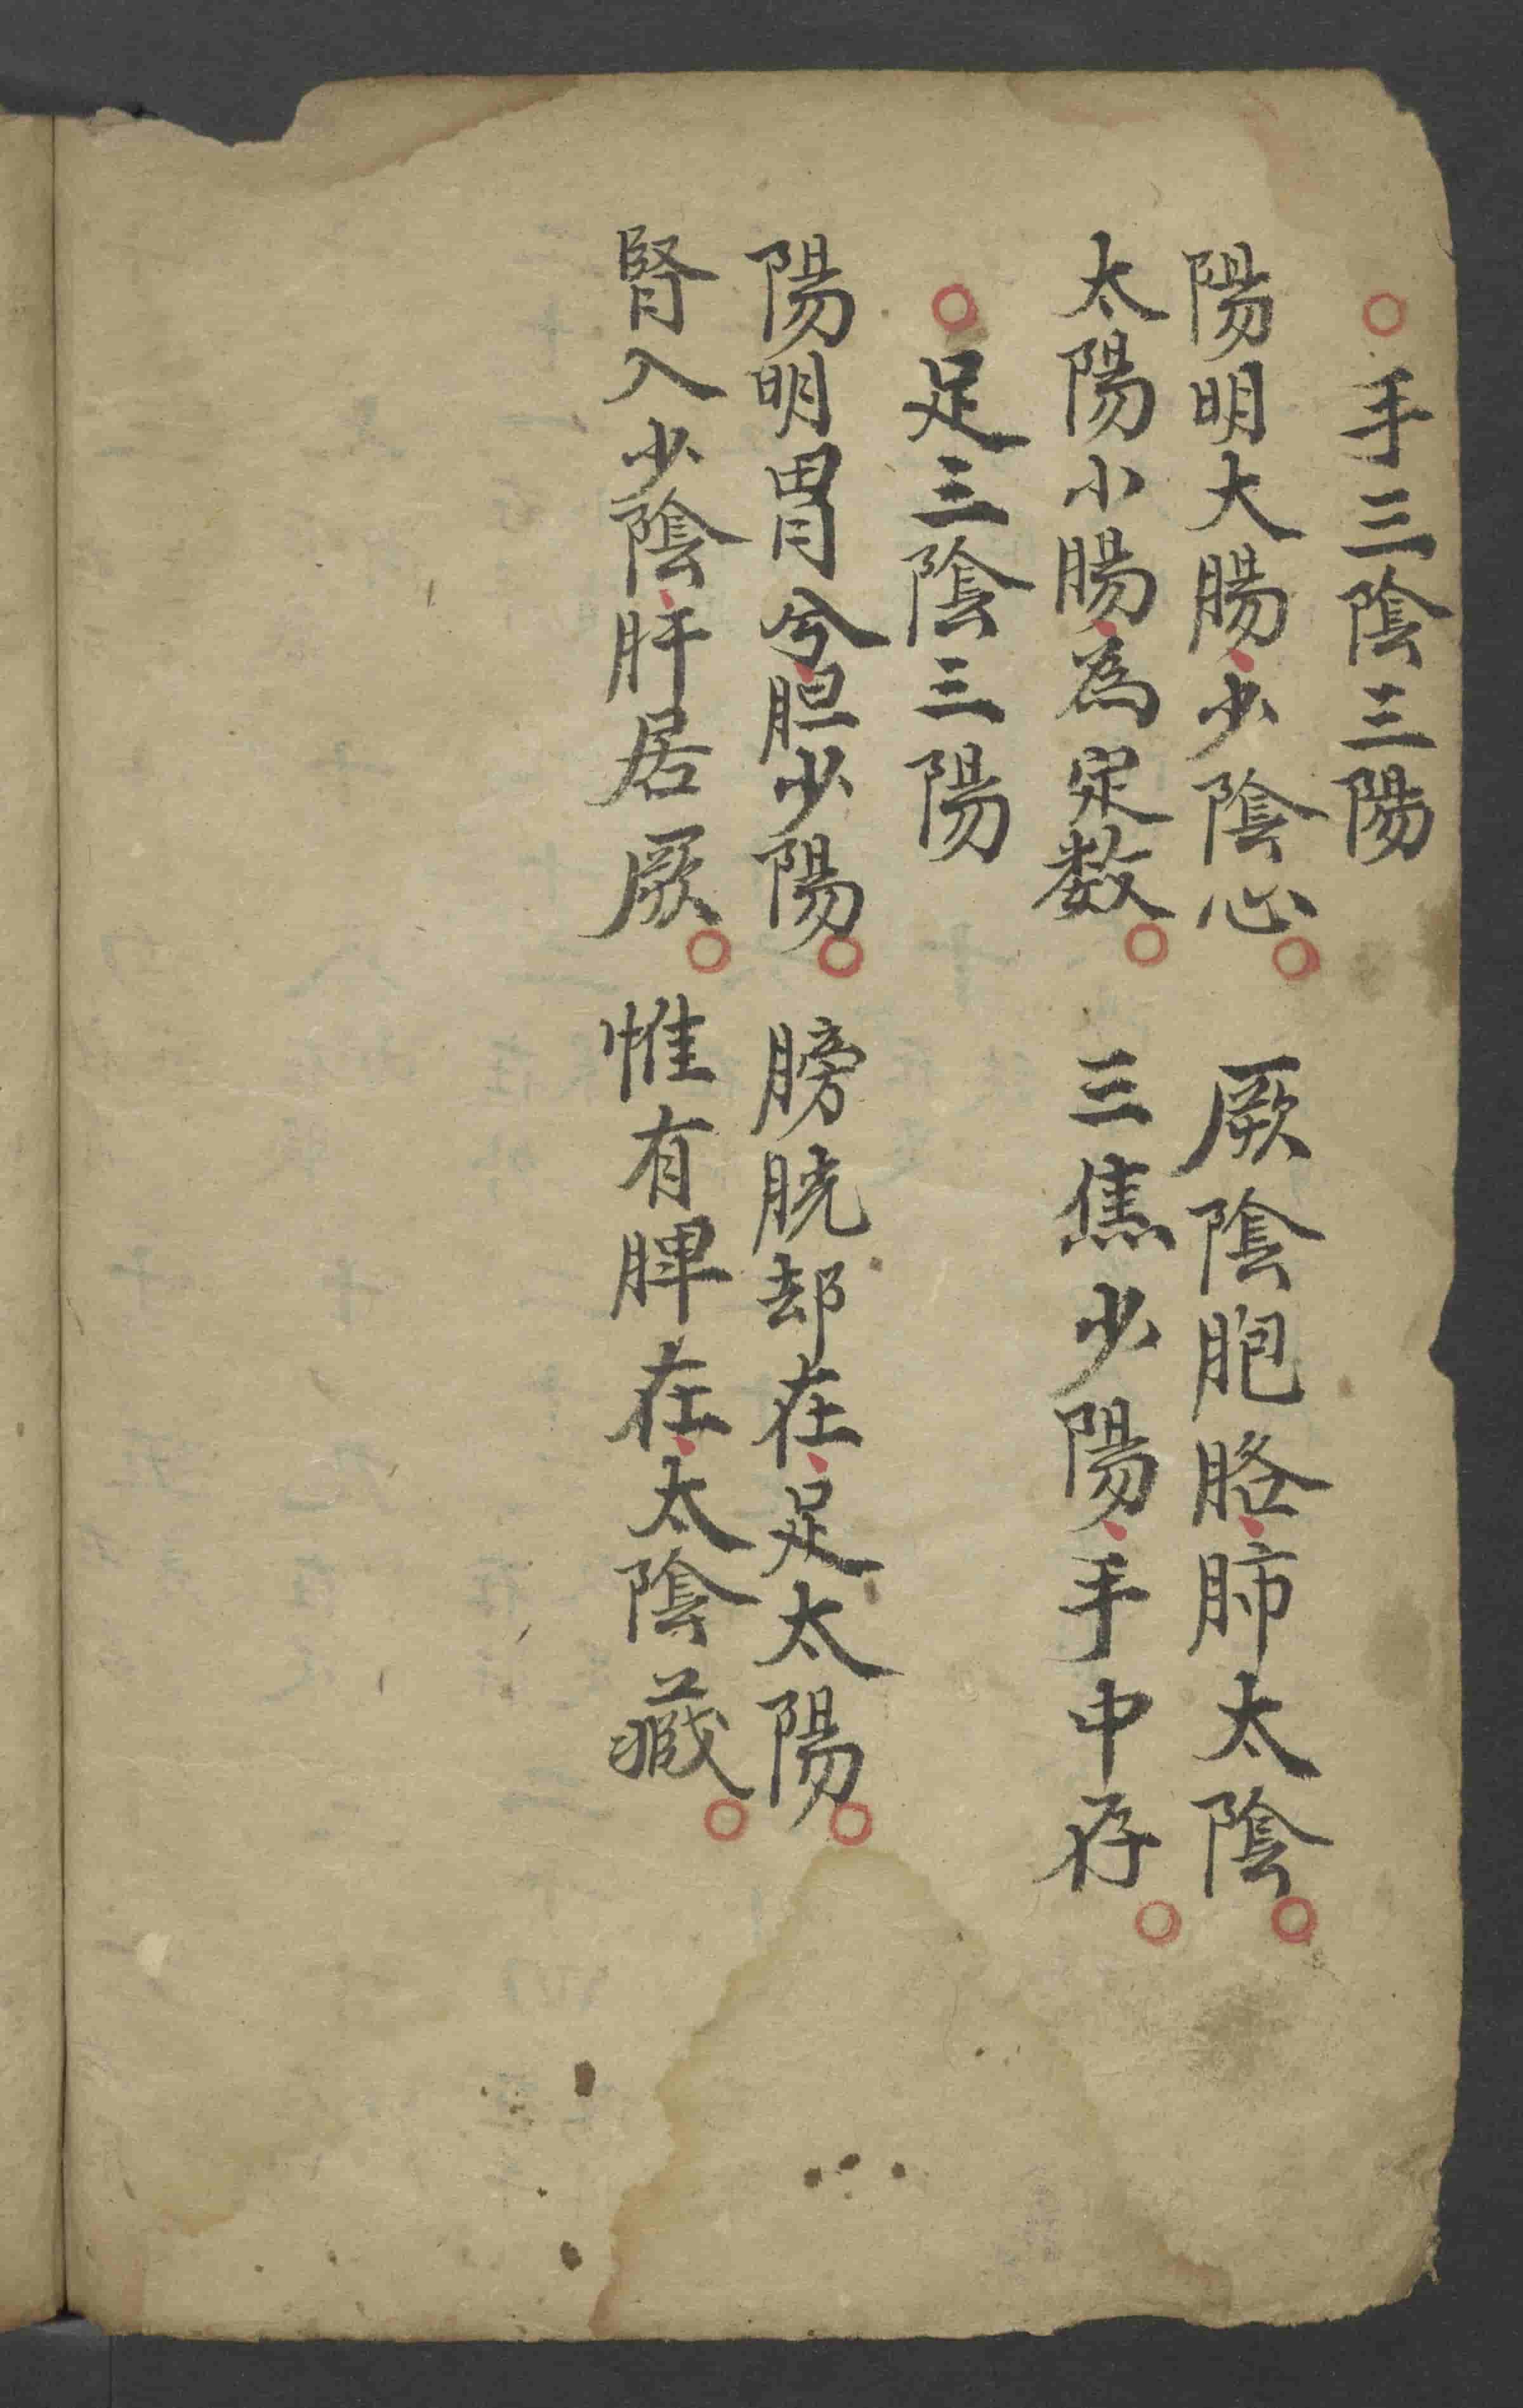 ○手三陰三陽
陽明大腸、少陰心○厥陰胞胳、肺太陰○
太陽小腸、為定数○三焦少陽、手中存○
○足三陰三陽
陽明胃兮、胆少陽○膀胱却在、足太陽○
腎入少陰、肝居厥○惟有脾在、太陰藏○